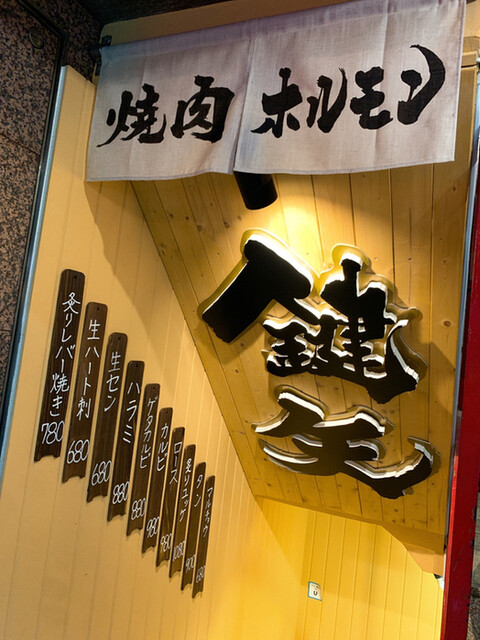 焼肉 ホルモン
鍵生
炙りレバー焼き 780
生ハート刺 680
生セン 680
ハラミ 880
ゲタカルビ 880
カルビ 980
ロース 980
炙りユッケ 1080
タン 900
マルチョウ 680